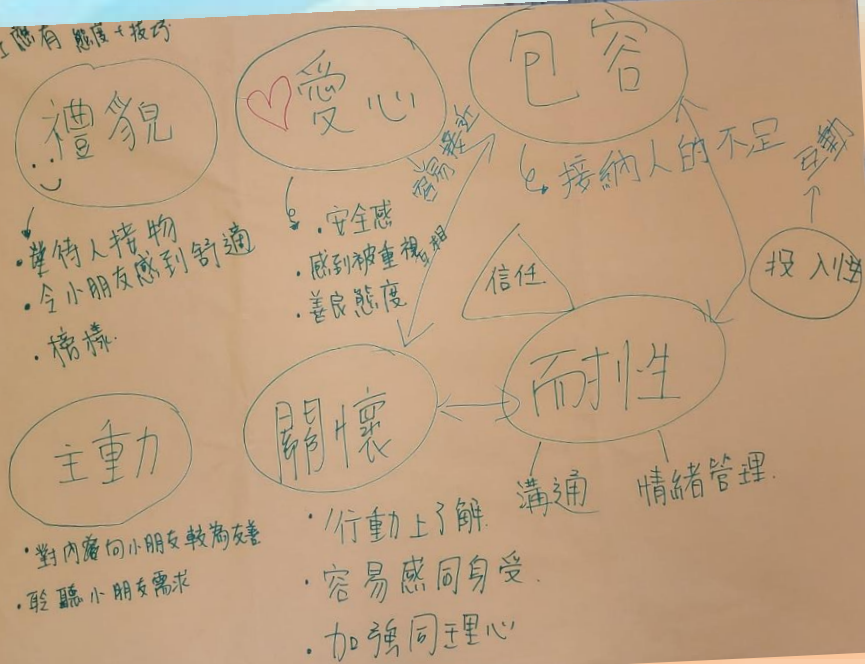 應有 態度+技巧
禮貌
待人接物
• 令小朋友感到舒適
• 榜樣
愛心
• 安全感
• 感到被重視
• 善良態度
包容
接納人的不足
容易接近
互相
信任
互動
投入性
主動
• 對內向小朋友較為友善
• 聆聽小朋友需求
關懷
• 行動上了解
• 容易感同身受
• 加強同理心
耐性
溝通
情緒管理